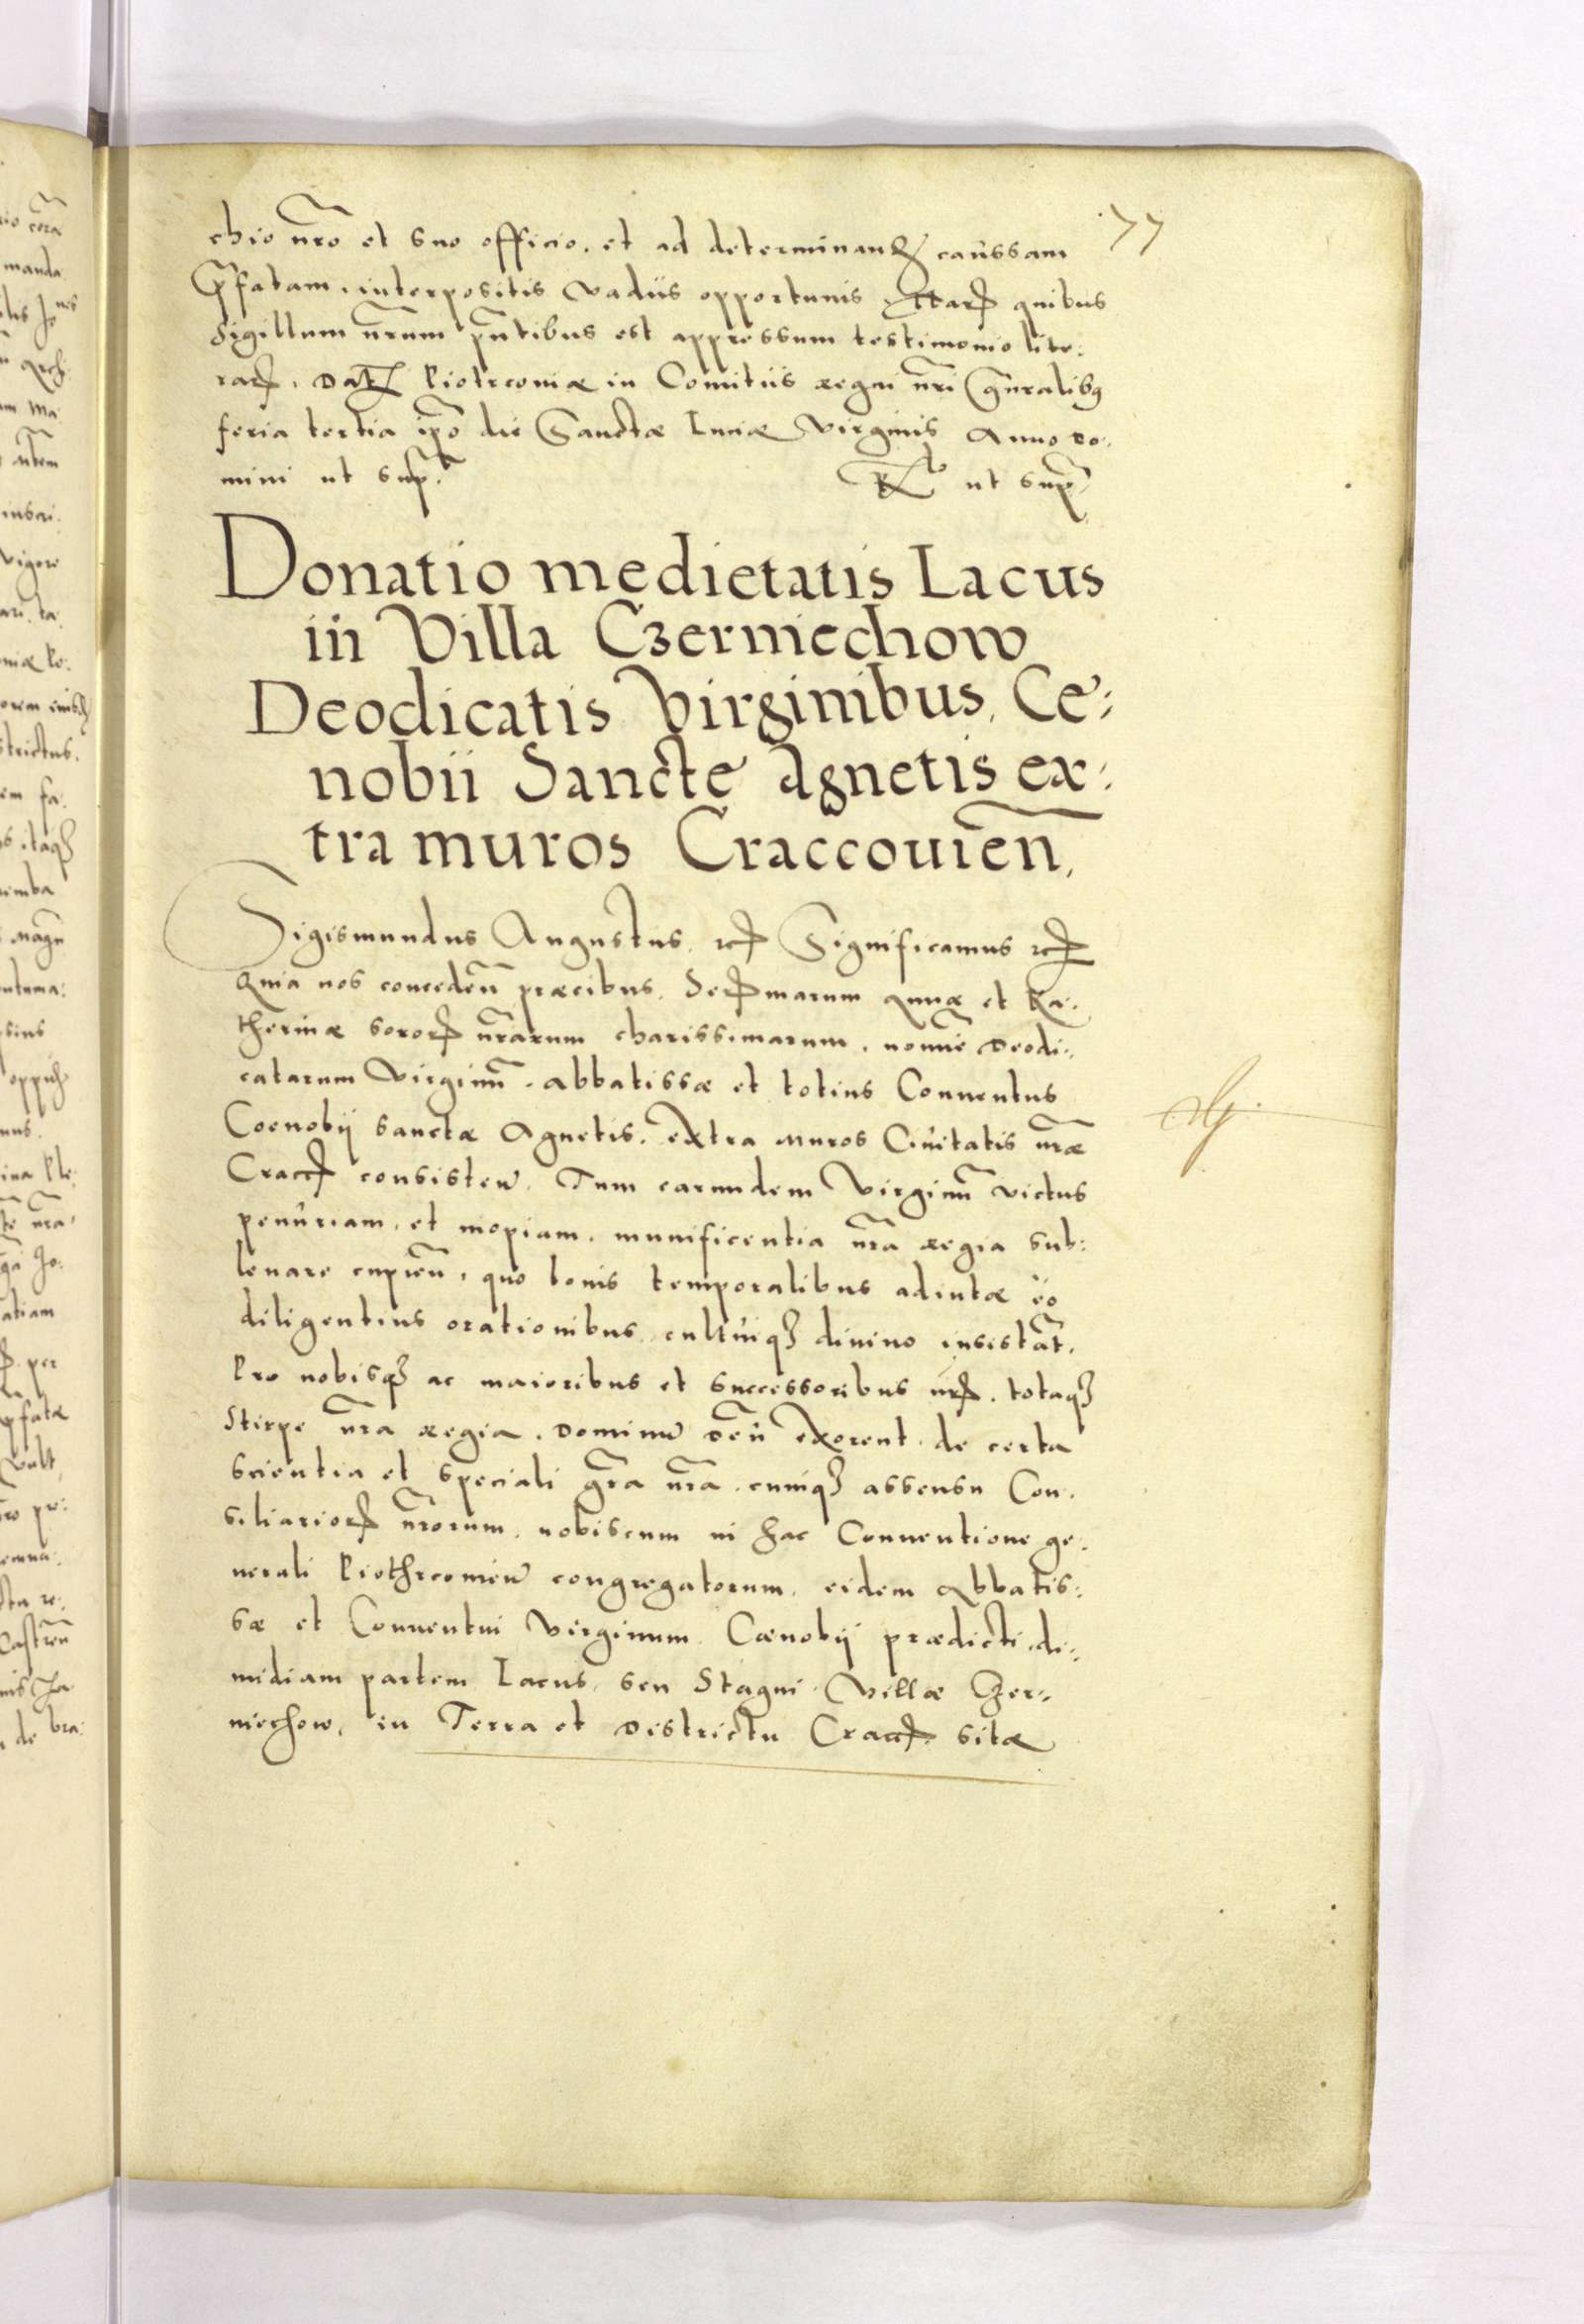 77
chio nr̃o et suo officio. et ad determinand caussam
p̃fatam. interpositis vadiis opportunis quibus
Sigillum nr̃um pñtibus est appressum testimonio lite:
rarꝝ. Dat Piotrconiæ in Comitiis Regni nr̃i gñralibꝫ
feria tertia ip̃o die Sanctæ Luciæ Virginis Anno Do:
mini ut sup.ᵃ ut sup̃
Donatio medietatis Lacus
in Villa Czerniechow
Deodicatis Virginibus, Ce:
nobii Sancte Agnetis ex:
tra muros Craccouien̄,
Sigismundus Augustus. rcꝝ Significamus rcꝝ
Quia nos conceden̄ præcibus. Serꝝmarum Annæ et Ka:
therinæ sororꝝ nr̃arum charissimarum. nomĩe Deodi:
catarum Virginũ. Abbatissæ et totius Conuentus
Coenobij Sanctæ Agnetis. extra muros Ciuitatis nr̃æ
Craccꝝ consisteñ. Tum earundem Virginũ victus
penuriam. et inopiam. munificentia nr̃a Regia sub:
leuare cupieñ. quo bonis temporalibus adiutæ eo
diligentius orationibus. cultuiqꝫ diuino insistãt.
Pro nobisqꝫ ac maioribus et successoribus nrꝝ. totaqꝫ
Stirpe nr̃a Regia. Dominũ Deũ exorent. de certa
scientia et speciali gr̃a nr̃a. cumqꝫ assensu Con:
siliariorꝝ nr̃orum. nobiscum in hac Conuentione ge:
nerali Piothrcouieñ congregatorum. eidem Abbatis:
sæ et Conuentui Virginum. Cænobij prædicti. di:
midiam partem Lacus. seu Stagni. Villæ Czer:
niechow. in Terra et Districtu Craccꝝ sitæ